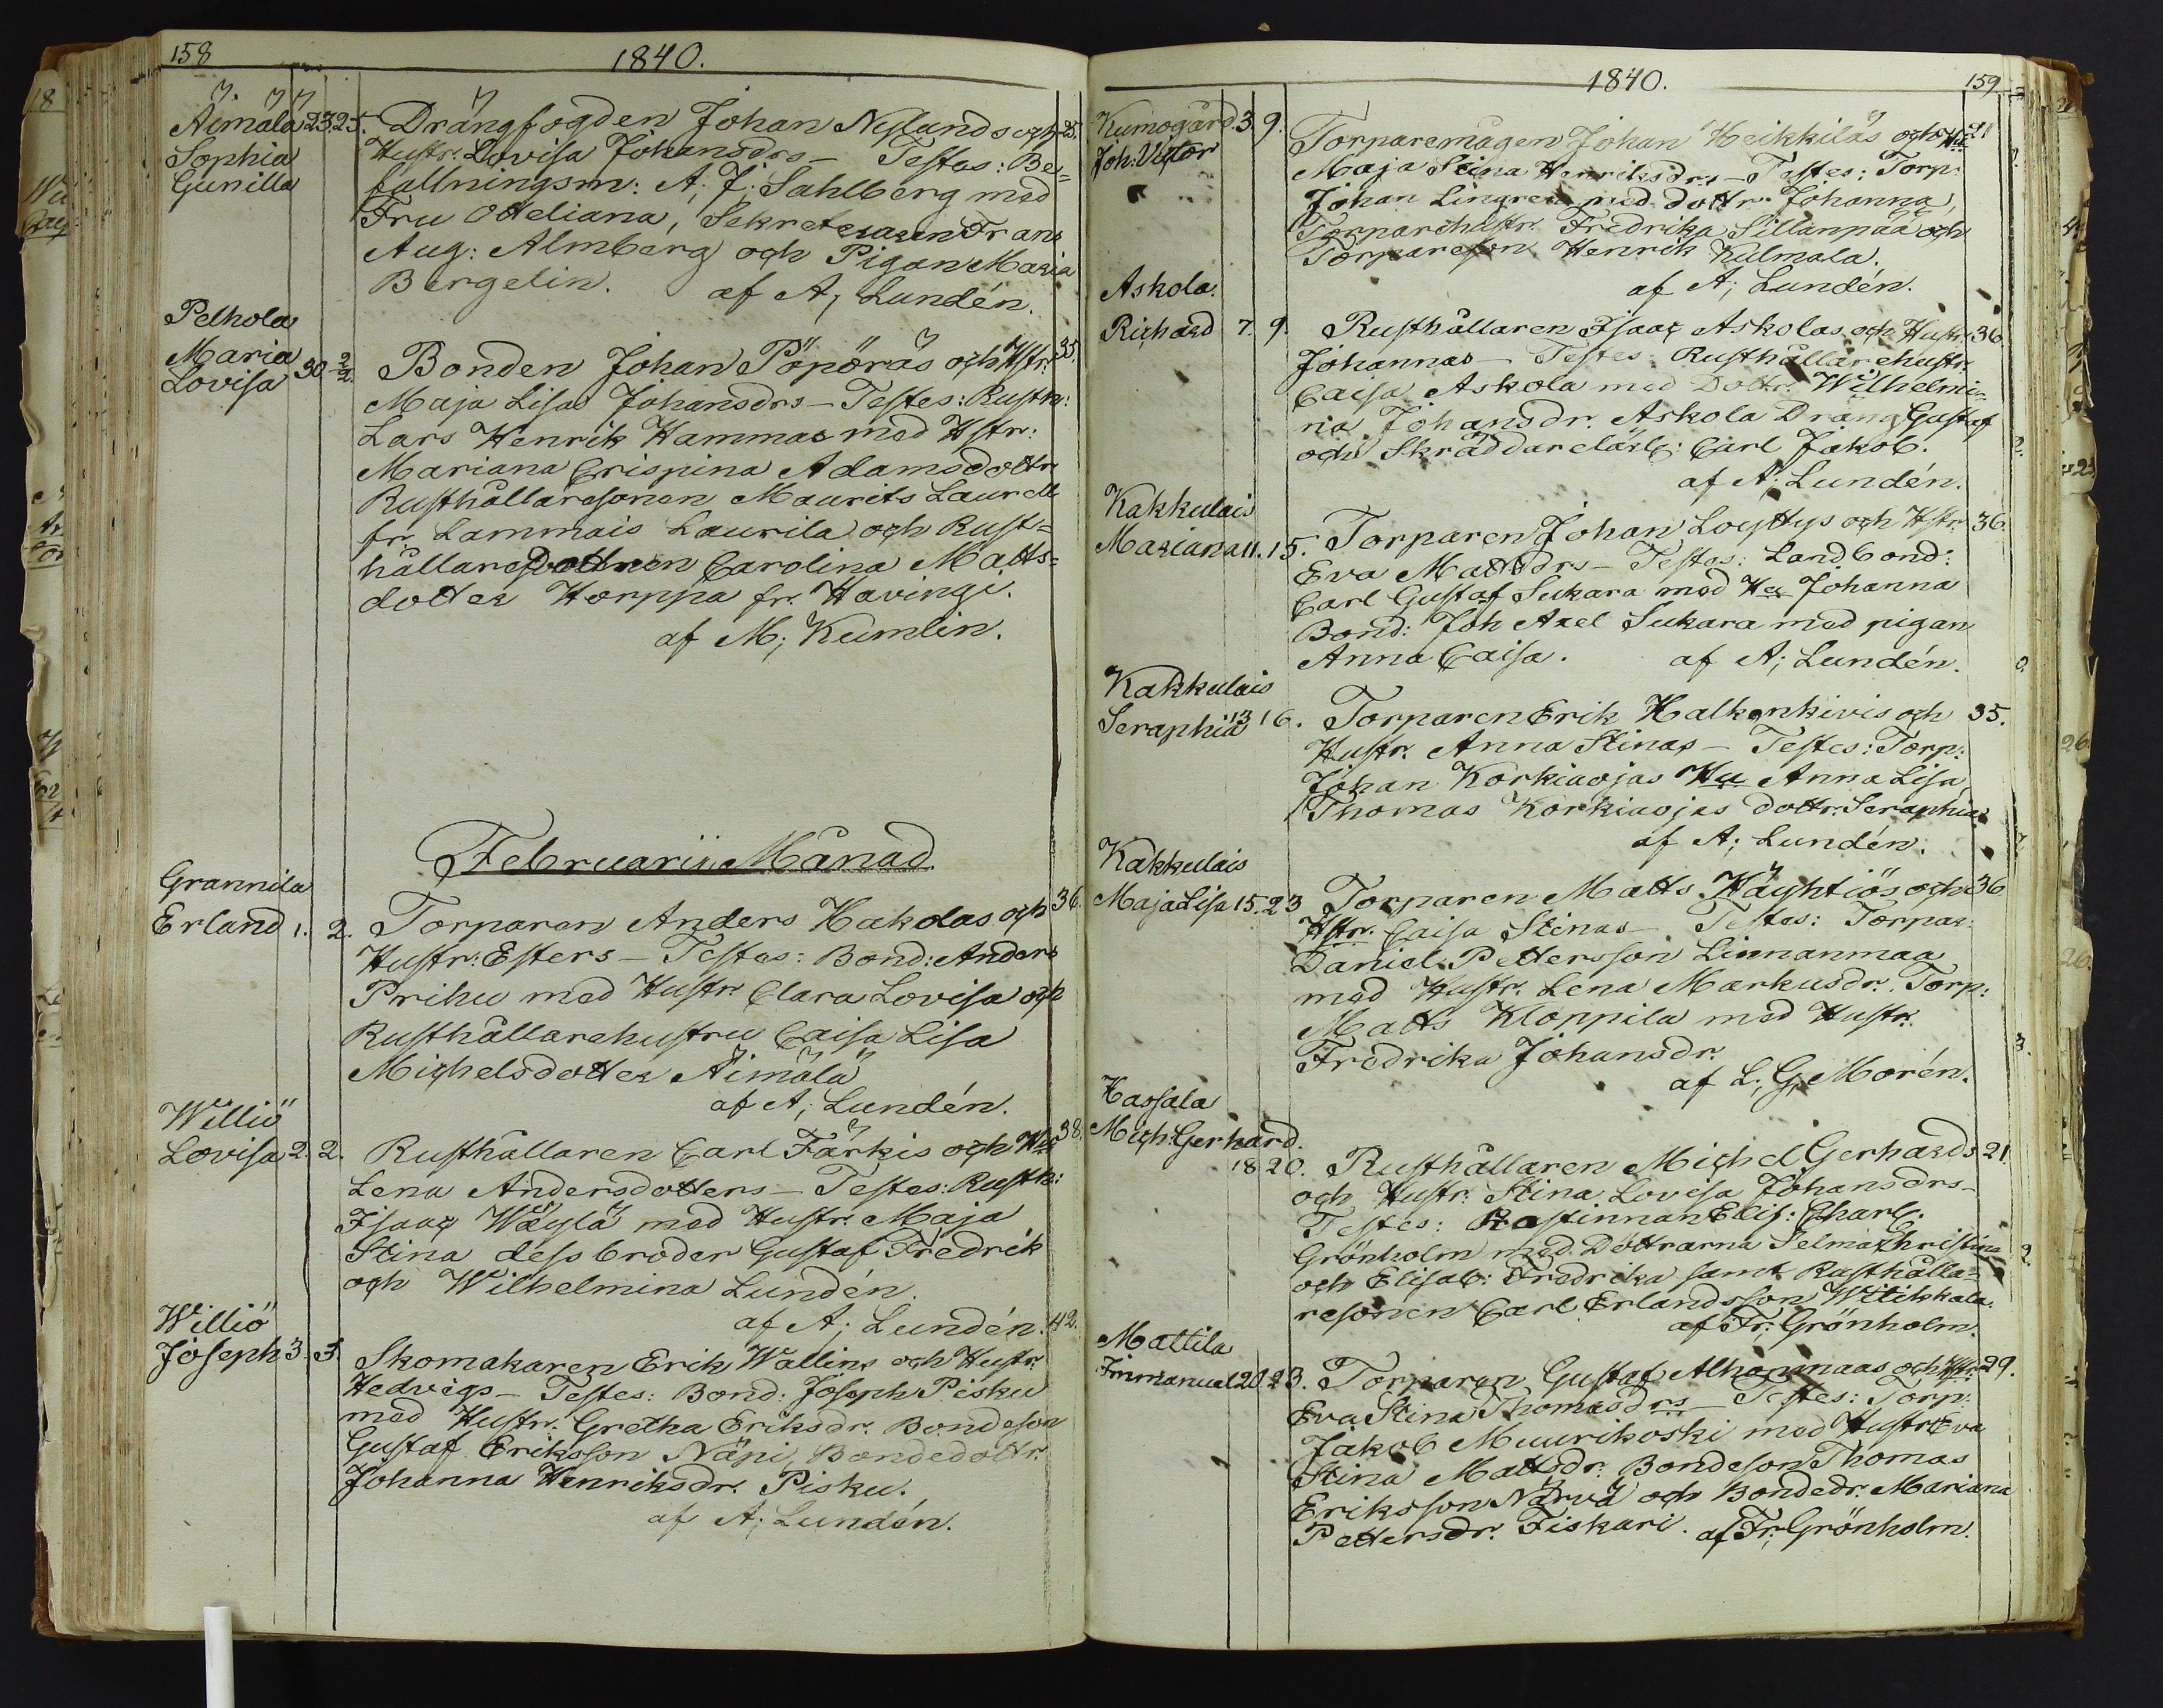 158
1840.
Äimälä 23. 25. Drängfogden Johan Nylunds och 25.
Sophia Hustr. Lovisa Johansdrs – Testes: Be=
Gunilla fallningsm: A. J. Sahlberg med
Fru Otteliana, Sekreteraren Frans
Aug: Almberg och Pigan Maria
Bergelin. af A; Lundén.
Pelhola
Maria 30. 2/2. Bonden Johan Pöpöräs och Hstr. 35.
Lovisa Maja Lisas Johansdrs – Testes: Rusth:
Lars Henrik Hammas med Hstr:
Mariana Crispina Adamsdottr
Rusthållaresonen Maurits Laurell
fr. Lammais Laurila och Rust=
hållaredottren Carolina Matts=
dotter Horppa fr. Havingi.
af M; Kumlin.
Februarii Månad
Grannila
Erland 1. 2. Torparen Anders Hakolas och 36.
Hustr: Esters – Testes: Bond: Anders
Prihu med Hustr. Clara Lovisa och
Rusthållarehustru Caisa Lisa
Michelsdotter Äimälä
af A; Lundén.
Williö
Lovisa 2. 2. Rusthållaren Carl Färkis och Hu 38.
Lena Andersdotters – Testes: Rusth:
Isaac Wäylä med Hustr. Maja
Stina dess broder Gustaf Fredrik
och Wilhelmina Lundén.
af A; Lundén.
Williö 42.
Joseph 3. 3. Skomakaren Erik Wallins och Hustr.
Hedvigs – Testes: Bond. Joseph Pisku
med Hustr. Gretha Eriksdr. Bondeson
Gustaf Eriksson Näpi, Bondedottr.
Johanna Henriksdr. Pisku.
af A; Lundén.
1840.
159
Kumogård 3. 9. Torparemågen Johan Heikkiläs och Hu 21
Joh: Victor Maja Stina Henriksdrs – Testes: Torp:
Johan Lingren med dottr. Johanna,
Torparehustr. Fredrika Sillanpää och
Torpareson Henrik Kulmala.
af A; Lundén.
Askola.
Richard 7. 9. Rusthållaren Isaac Askolas och Hustr. 36.
Johannas – Testes: Rusthållarehustr.
Caisa Askola med Dottr. Wilhelmi=
na Johansdr. Askola Dräng Gustaf
och Skräddarelärl: Carl Jakob.
af A. Lundén.
Kakkulais
Mariana 11. 15. Torparen Johan Loyttys och Hstr. 36.
Eva Mattsdrs – Testes: Landbond:
Carl Gustaf Sukara med Hu Johanna
Bond: Joh Axel Sukara med pigan
Anna Caisa. af A; Lundén.
Kakkulais
Seraphia 13 16. Torparen Erik Halkenkivis och 35.
Hustr. Anna Stinas – Testes: Torp.
Johan Korkiaojas Hu Anna Lisa,
Thomas Korkiaojas dottr. Seraphia
af A; Lundén.
Kakkulais
Maja Lisa 15. 23 Torparen Matts Häyhtiös och 36
Hstr. Caisa Stinas – Testes: Torpar:
Daniel Pettersson Linnanmaa
med Hustr. Lena Markusdr. Torp:
Matts Kloppila med Hustr.
Fredrika Johansdr.
af L. G. Morén.
Hassala
Mich: Gerhard.
18. 20. Rusthållaren Michel Gerhards 21.
och Hustr. Stina Lovisa Johansdrs –
Testes: Rastinnan Elis: Charl:
Grönholm med Döttrarna Selma Christina
och Elisab: Fredrika samt Rusthålla=
resonen Carl Erlandsson Witikkala.
af Fr: Grönholm.
Mattila
Immanuel 20. 23. Torparen Gustaf Alhonmaas och Hstr. 29.
Eva Stina Thomasdrs – Testes: Torp:
Jakob Muurikoski med Hustr Eva
Stina Mattsdr. Bondeson Thomas
Eriksson Närvä och Bondedr. Mariana
Pettersdr. Fiskari. af Fr. Grönholm.